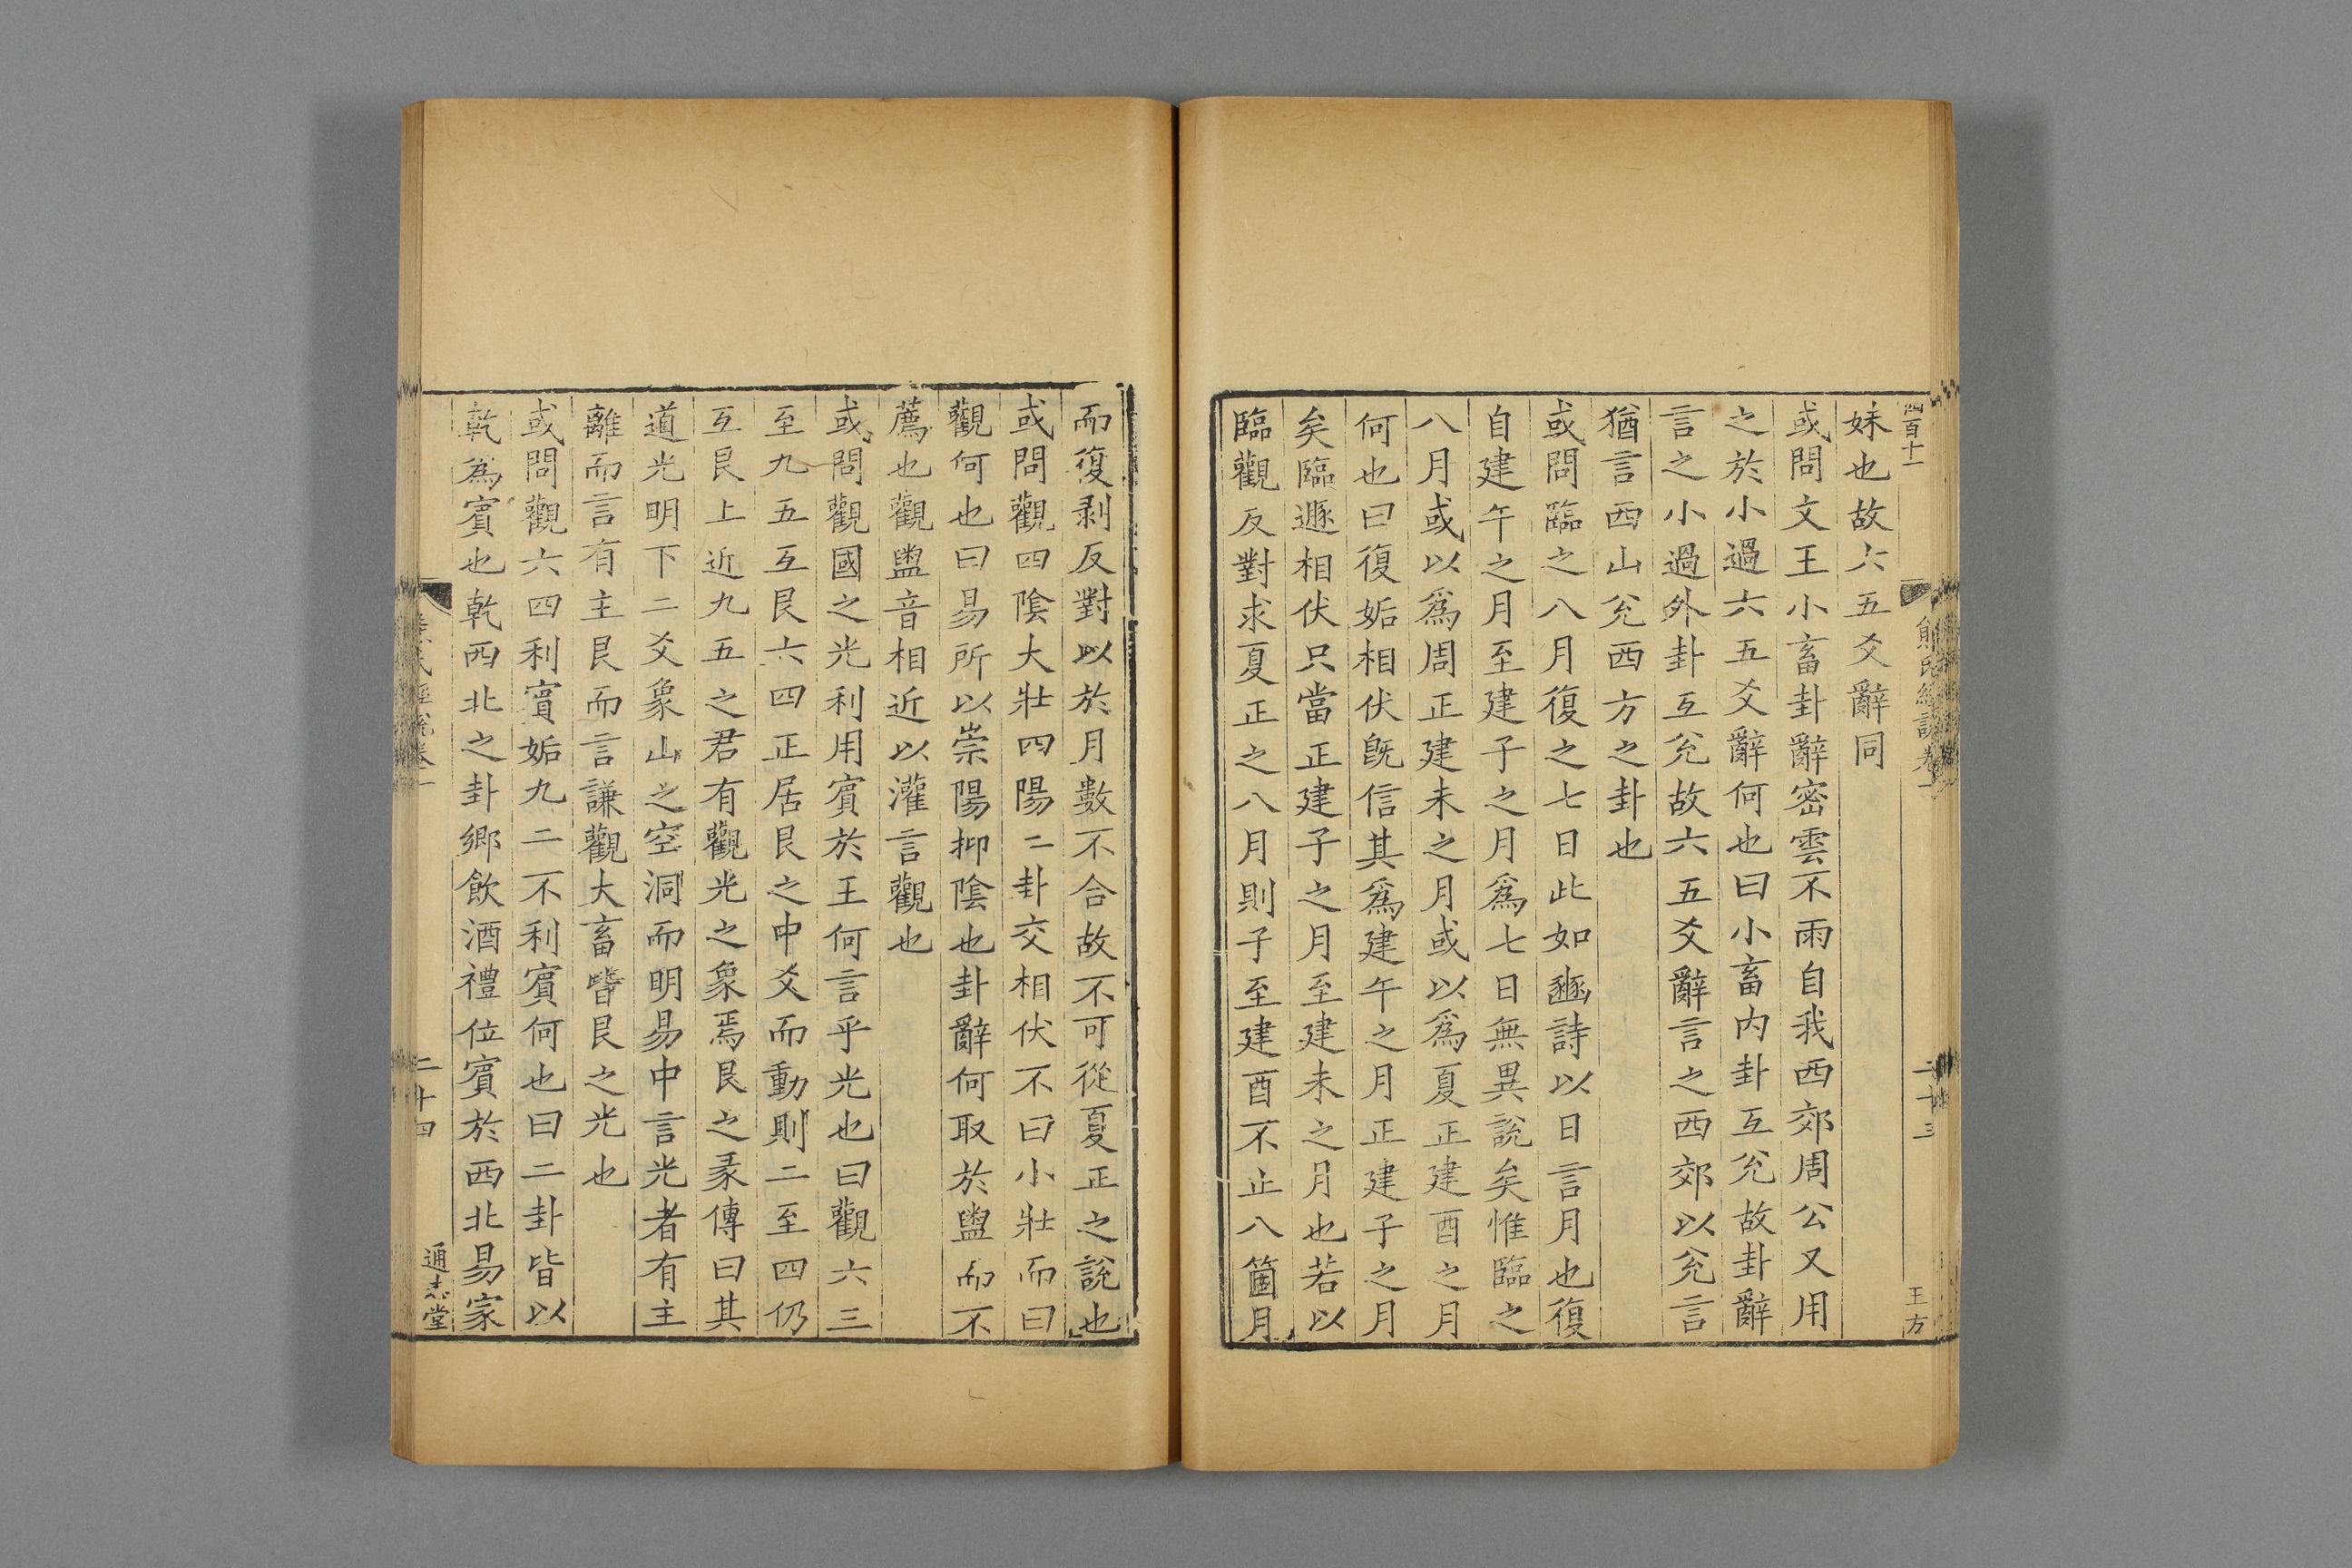 四百十一
熊氏經說卷一
二十三
王方
妹也故六五爻辭同
或問文王小畜卦辭密雲不雨自我西郊周公又用
之於小過六五爻辭何也曰小畜內卦互兊故卦辭
言之小過外卦互兊故六五爻辭言之西郊以兊言
猶言西山兊西方之卦也
或問臨之八月復之七日此如豳詩以日言月也復
自建午之月至建子之月爲七日無異說矣惟臨之
八月或以爲周正建未之月或以爲夏正建酉之月
何也曰復姤相伏旣信其爲建午之月正建子之月
矣臨遯相伏只當正建子之月至建未之月也若以
臨觀反對求夏正之八月則子至建酉不止八箇月
而復剥反對以於月數不合故不可從夏正之說也
或問觀四陰大壯四陽二卦交相伏不曰小壯而曰
觀何也曰易所以崇陽抑陰也卦辭何取於盥而不
薦也觀盥音相近以灌言觀也
或問觀國之光利用賓於王何言乎光也曰觀六三
至九五互艮六四正居艮之中爻而動則二至四仍
互艮上近九五之君有觀光之象焉艮之彖傳曰其
道光明下二爻象山之空洞而明易中言光者有主
離而言有主艮而言謙觀大畜皆艮之光也
或問觀六四利賓姤九二不利賓何也曰二卦皆以
乾爲賓也乾西北之卦鄉飲酒禮位賓於西北易家
熊氏經說卷一
二十四
通志堂